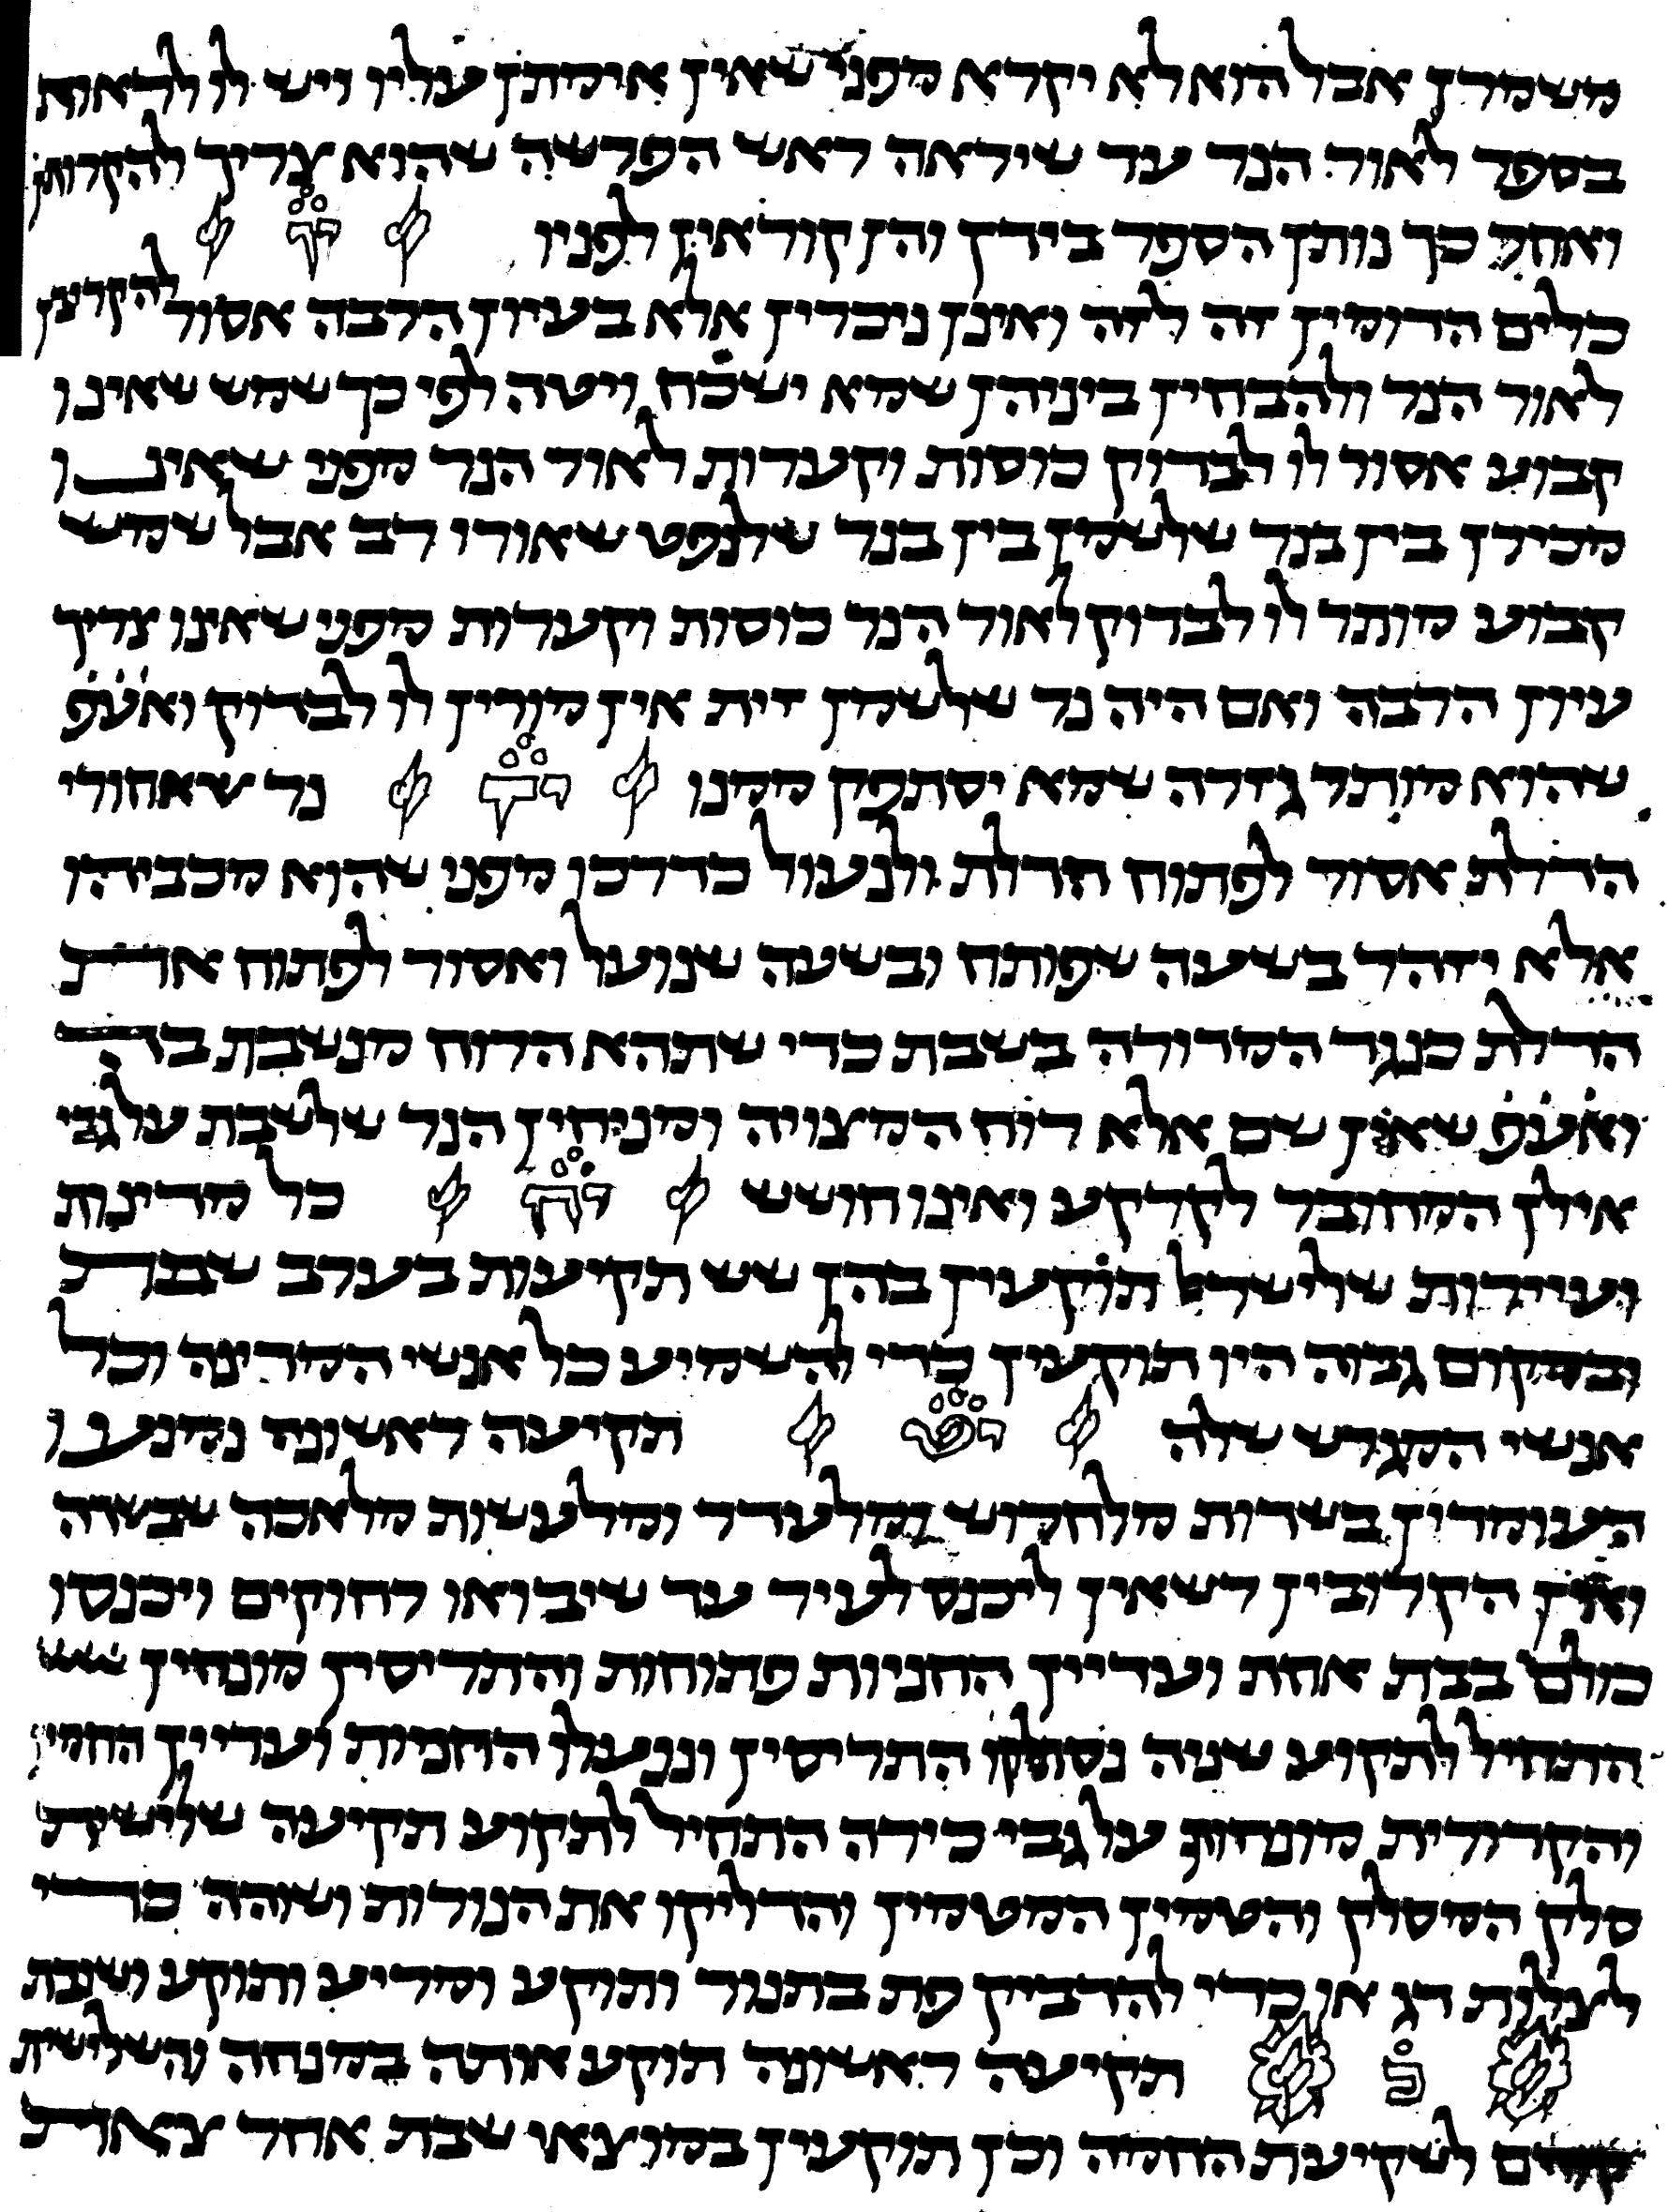 משמרן אבל הוא לא יקרא מפני שאין אימתן עליו ויש לו לראות
בספר לאור הנר עד שיראה ראש הפרשה שהוא צריך להקרותן
ואחר כך נותן הספר בידן והן קוראין לפניו
כלים הדומין זה לזה ואינן ניכרין אלא בעיון הרבה אסור להקריבן
לאור הנר ולהבחין ביניהן שמא ישכח ויטה לפי כך שמש שאינו
קבוע אסור לו לבדוק כוסות וקערות לאור הנר מפני שאינו
מכירן בין בנר שלשמן בין בנר שלנפט שאורו רב אבל שמש
קבוע מותר לו לבדוק לאור הנר כוסות וקערות מפני שאינו צריך
עיון הרבה ואם היה נר שלשמן זית אין מורין לו לבדוק ואעפ
שהוא מותר גזרה שמא יסתפק ממנו נר שאחורי
הדלת אסור לפתוח הדלת ולנעול כדרכו מפני שהוא מכביהו
אלא יזהר בשעה שפותח ובשעה שנועל ואסור לפתוח את
הדלת כנגד המדורה בשבת כדי שתהא הרוח מנשבת בה
ואעפ שאין שם אלא רוח המצויה ומניחין הנר שלשבת על גבי
אילן המחובר לקרקע ואינו חושש כל מדינות
ועיירות שלישראל תוקעין בהן שש תקיעות בערב שבת
ובמקום גבוה היו תוקעין כדי להשמיע כל אנשי המדינה וכל
אנשי המגרש שלה תקיעה ראשונה נמנעו
העומדין בשדות מלחרוש ומלעדר ומלעשות מלאכה שבשדה
ואין הקרובין רשאין ליכנס לעיר עד שיבואו רחוקים ויכנסו
כולם בבת אחת ועדיין החניות פתוחות והתריסין מונחין
התחיל לתקוע שניה נסתלקו התריסין וננעלו החניות ועדיין החמין
והקדרות מונחות על גבי כירה התחיל לתקוע תקיעה שלישית
סלק המסלק והטמין המטמין והדליקו את הנורות ושוהה כדי
לצלות דג או כדי להדביק פת בתנור ותוקע ומריע ותוקע ושובת
פ תקיעה ראשונה תוקע אותה במנחה והשלישית
לשקיעת החמה וכן תוקעין במוצאי שבת אחר צאת